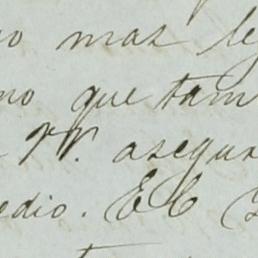 o mas le
no que tam
Vv. asegur
edio. El